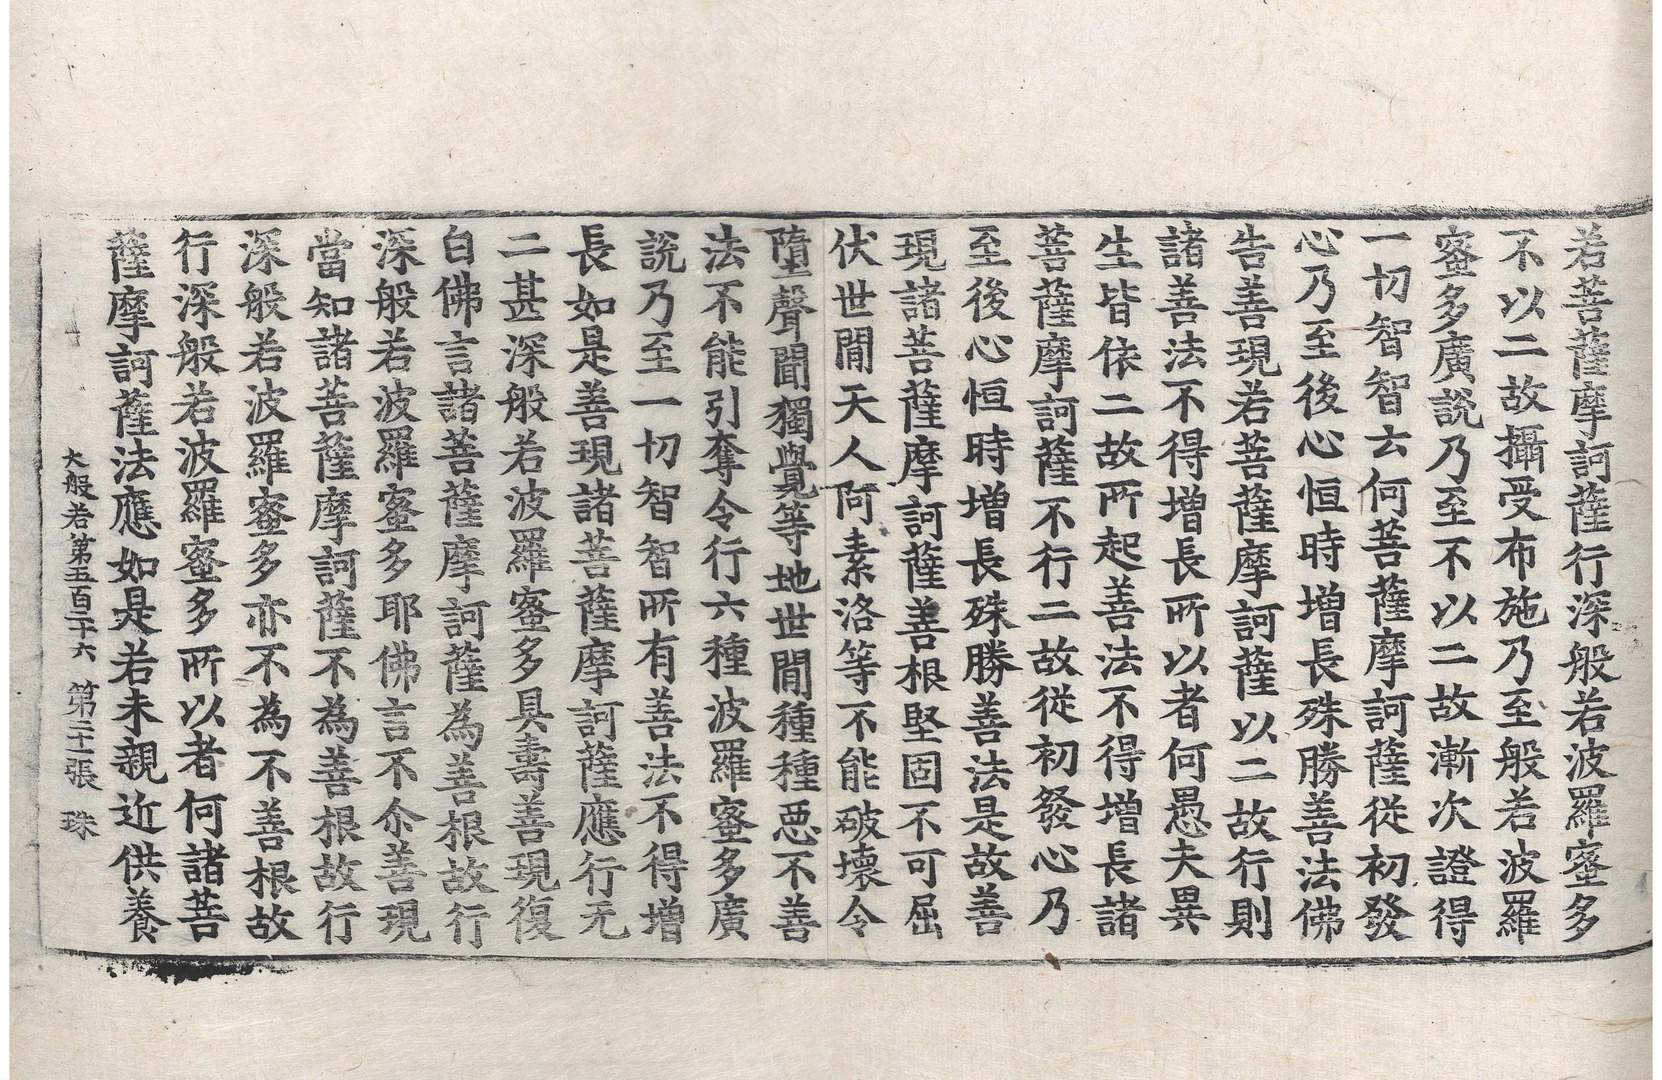 若菩薩摩訶薩行深般若波羅蜜多
不以二故攝受布施乃至般若波羅
蜜多廣說乃至不以二故漸次證得
一切智智云何菩薩摩訶薩從初發
心乃至後心恒時增長殊勝善法佛
告善現若菩薩摩訶薩以二故行則
諸善法不得增長所以者何愚夫異
生皆依二故所起善法不得增長諸
菩薩摩訶薩不行二故從初發心乃
至後心恒時增長殊勝善法是故善
現諸菩薩摩訶薩善根堅固不可屈
伏世間天人阿素洛等不能破壞令
墮聲聞獨覺等地世間種種惡不善
法不能引奪令行六種波羅蜜多廣
說乃至一切智智所有善法不得增
長如是善現諸菩薩摩訶薩應行无
二甚深般若波羅蜜多具壽善現復
白佛言諸菩薩摩訶薩為善根故行
深般若波羅蜜多耶佛言不尒善現
當知諸菩薩摩訶薩不為善根故行
深般若波羅蜜多亦不為不善根故
行深般若波羅蜜多所以者何諸菩
薩摩訶薩法應如是若未親近供養
大般若第五百二十六 第二十一張 珠